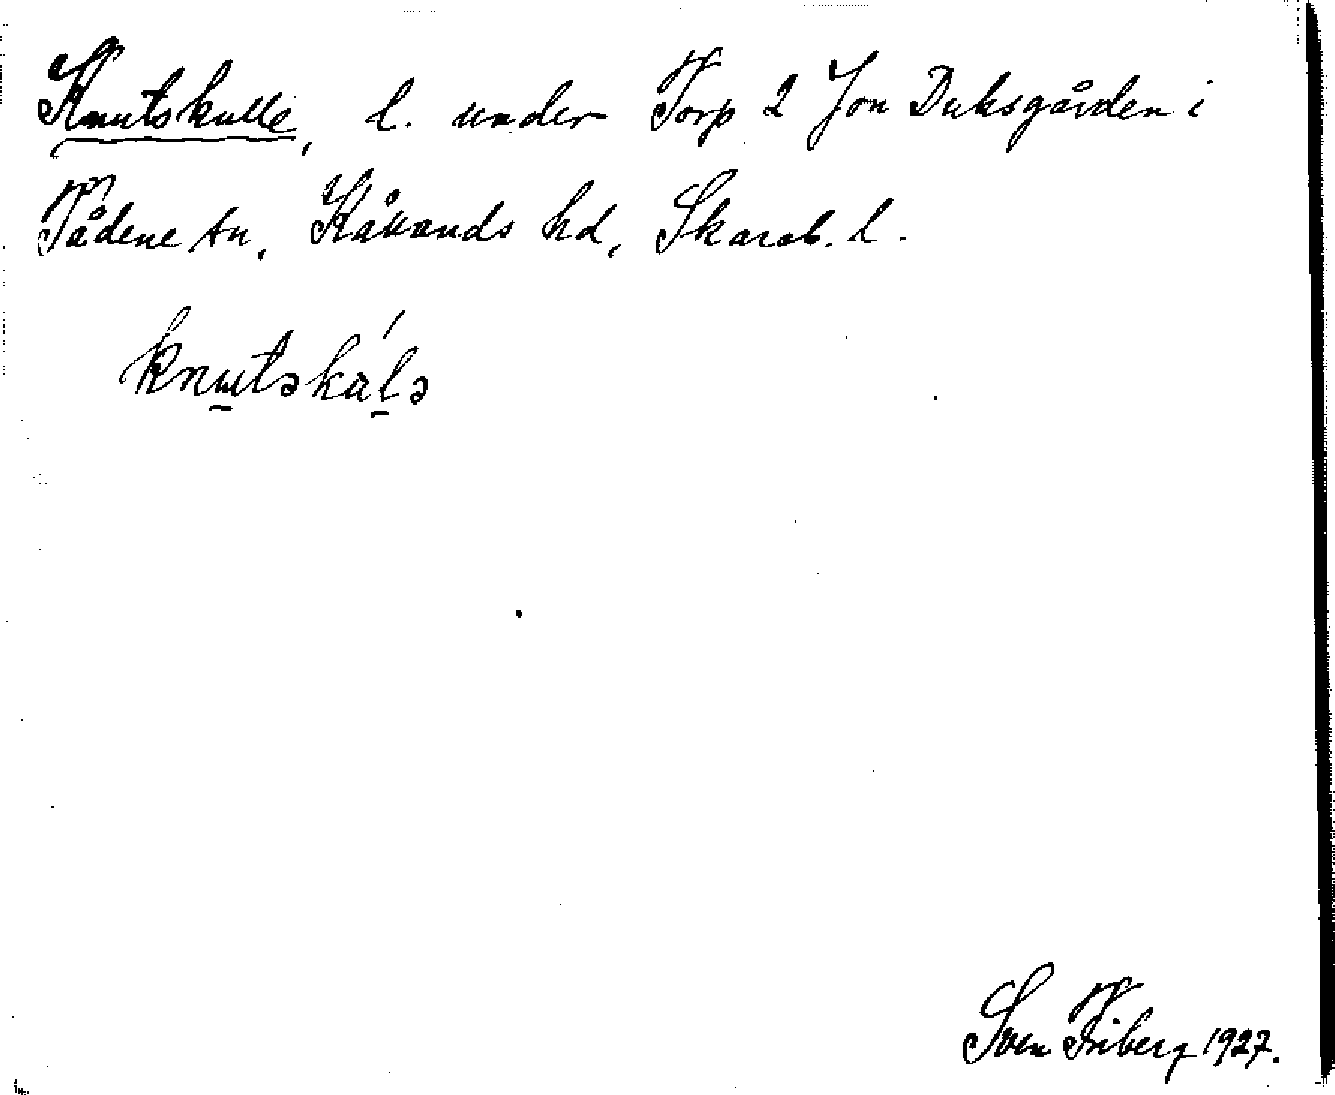 Knutskulle, l. under Torp 2 Jon Duksgården i
Tådene sn, Kållands hd, Skarab. l.
knutskulə
Sven Friberg 1927.